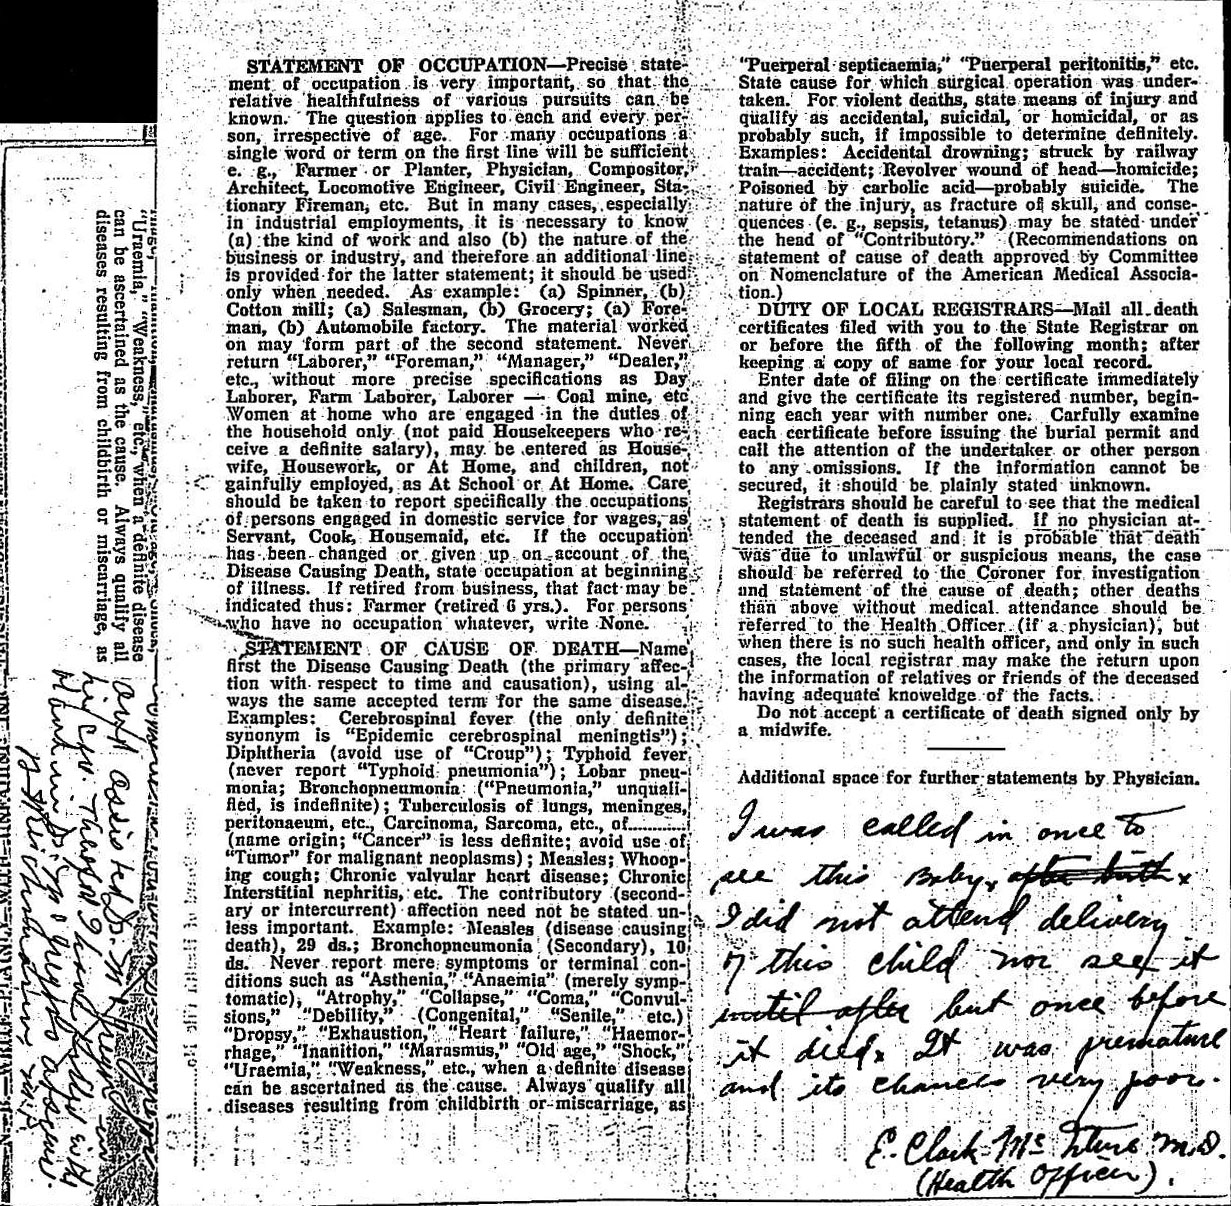 STATEMENT OF OCCUPATION—Precise state-
ment of occupation is very important, so that the
relative healthfulness of various pursuits can be
known. The question applies to each and every per-
son, irrespective of age. For many occupations a
single word or term on the first line will be sufficient
e. g., Farmer or Planter, Physician, Compositor,
Architect, Locomotive Engineer, Civil Engineer, Sta-
tionary Fireman, etc. But in many cases, especially
in industrial employments, it is necessary to know
(a) the kind of work and also (b) the nature of the
business or industry, and therefore an additional line
is provided for the latter statement; it should be used
only when needed. As example: (a) Spinner, (b)
Cotton mill; (a) Salesman, (b) Grocery; (a) Fore-
man, (b) Automobile factory. The material worked
on may form part of the second statement. Never
return "Laborer," "Foreman," "Manager," "Dealer,"
etc., without more precise specifications as Day
Laborer, Farm Laborer, Laborer — Coal mine, etc
Women at home who are engaged in the duties of
the household only (not paid Housekeepers who re-
ceive a definite salary), may be entered as House-
wife, Housework, or At Home, and children, not
gainfully employed, as At School or At Home. Care
should be taken to report specifically the occupations
of persons engaged in domestic service for wages, as
Servant, Cook, Housemaid, etc. If the occupation
has been changed or given up on account of the
Disease Causing Death, state occupation at beginning
of illness. If retired from business, that fact may be
indicated thus: Farmer (retired 6 yrs.). For persons
who have no occupation whatever, write None.
STATEMENT OF CAUSE OF DEATH—Name
first the Disease Causing Death (the primary affec-
tion with respect to time and causation), using al-
ways the same accepted term for the same disease.
Examples: Cerebrospinal fever (the only definite
synonym is "Epidemic cerebrospinal meningtis");
Diphtheria (avoid use of "Croup"); Typhoid fever
(never report "Typhoid pneumonia"); Lobar pneu-
monia; Bronchopneumonia ("Pneumonia," unquali-
fied, is indefinite); Tuberculosis of lungs, meninges,
peritonaeum, etc., Carcinoma, Sarcoma, etc., of............
(name origin; "Cancer" is less definite; avoid use of
"Tumor" for malignant neoplasms); Measles; Whoop-
ing cough; Chronic valvular heart disease; Chronic
Interstitial nephritis, etc. The contributory (second-
ary or intercurrent) affection need not be stated un-
less important. Example: Measles (disease causing
death), 29 ds.; Bronchopneumonia (Secondary), 10
ds. Never report mere symptoms or terminal con-
ditions such as "Asthenia," "Anaemia" (merely symp-
tomatic), "Atrophy," "Collapse," "Coma," "Convul-
sions," "Debility," (Congenital," "Senile," etc.)
"Dropsy," "Exhaustion," "Heart failure," "Haemor-
rhage," "Inanition," "Marasmus," "Old age," "Shock,"
"Uraemia," "Weakness," etc., when a definite disease
can be ascertained as the cause. Always qualify all
diseases resulting from childbirth or miscarriage, as
"Puerperal septicaemia," "Puerperal peritonitis," etc.
State cause for which surgical operation was under-
taken. For violent deaths, state means of injury and
qualify as accidental, suicidal, or homicidal, or as
probably such, if impossible to determine definitely.
Examples: Accidental drowning; struck by railway
train—accident; Revolver wound of head—homicide;
Poisoned by carbolic acid—probably suicide. The
nature of the injury, as fracture of skull, and conse-
quences (e. g., sepsis, tetanus) may be stated under
the head of "Contributory." (Recommendations on
statement of cause of death approved by Committee
on Nomenclature of the American Medical Associa-
tion.)
DUTY OF LOCAL REGISTRARS—Mail all death
certificates filed with you to the State Registrar on
or before the fifth of the following month; after
keeping a copy of same for your local record.
Enter date of filing on the certificate immediately
and give the certificate its registered number, begin-
ning each year with number one. Carfully examine
each certificate before issuing the burial permit and
call the attention of the undertaker or other person
to any omissions. If the information cannot be
secured, it should be plainly stated unknown.
Registrars should be careful to see that the medical
statement of death is supplied. If no physician at-
tended the deceased and it is probable that death
was due to unlawful or suspicious means, the case
should be referred to the Coroner for investigation
and statement of the cause of death; other deaths
than above without medical attendance should be
referred to the Health Officer (if a physician), but
when there is no such health officer, and only in such
cases, the local registrar may make the return upon
the information of relatives or friends of the deceased
having adequate knoweldge of the facts.
Do not accept a certificate of death signed only by
a midwife.
Additional space for further statements by Physician.
I was called in once to
see this Baby, after birth
I did not attend delivery
of this child nor see it
until after but once before
it died. It was premature
and its chances very poor.
E. Clark M.D.
(Health Officer).
"Uraemia," "Weakness," etc., when a definite disease
can be ascertained as the cause. Always qualify all
diseases resulting from childbirth or miscarriage, as